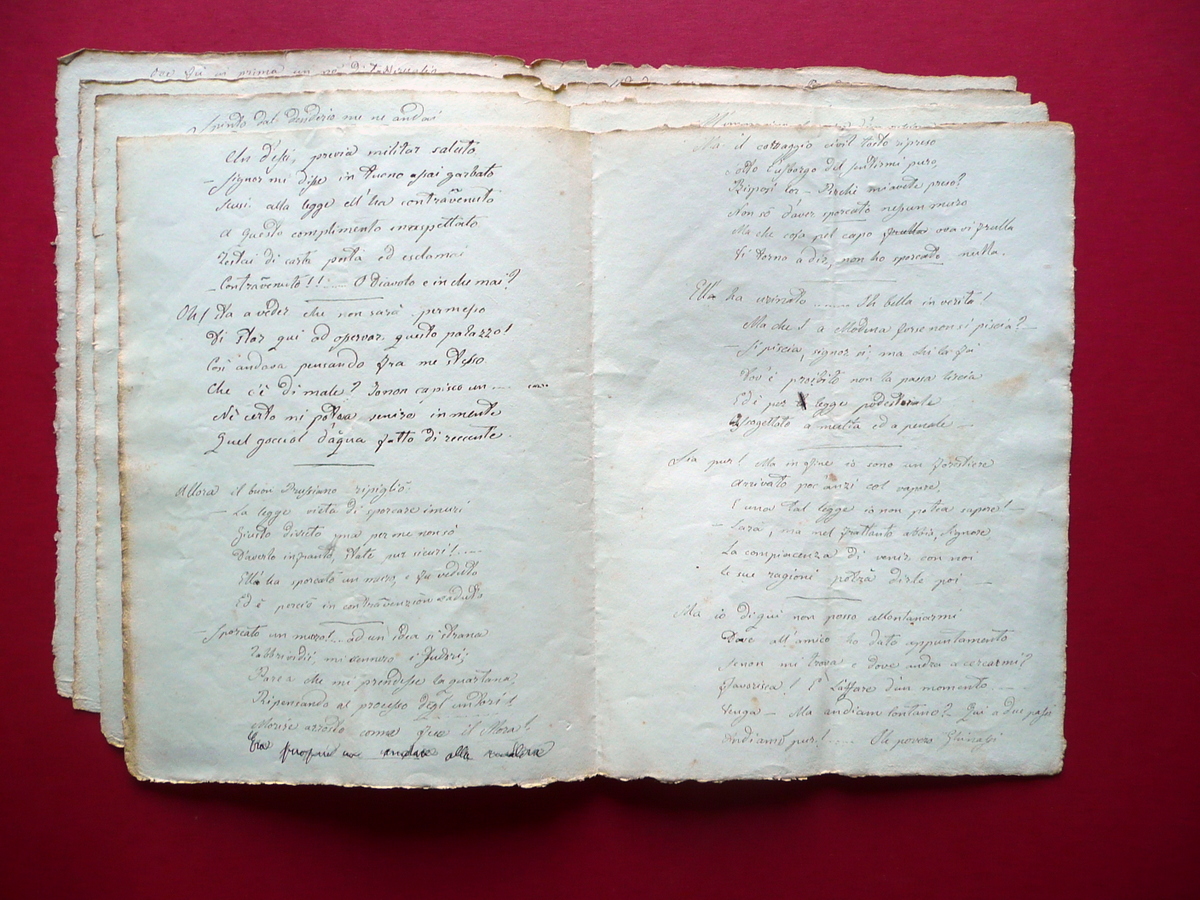 Spinto dal desiderio me ne andai
Un d'essi, previa militar saluto
– Signor mi disse in tuono assai garbato
Scusi alla legge ell'ha contravenuto
A questo complimento inaspettato
Restai di carta pesta ed esclamai
– Contravenuto!! ...... O Diavolo e in che mai?
Oh! sta a veder che non sarà permesso
Di star qui ad osservar questo palazzo!
Così andava pensando fra me stesso
Che c'è di male? Io non capisco un ......
Nè certo mi potea venire in mente
Quel gocciol d'aqua fatto di reccente.
Allora il buon Prussiano ripigliò
– La legge vieta di sporcare i muri
Giusto divieto ma per me non so
D'averlo infranto, state pur sicuri! ......
Ella ha sporcato un muro, e fu veduto
Ed è perciò in contravenzion caduto
– Sporcato un muro! .. ad un idea sì strana
Rabbrividii, mi vennero i sudori,
Parea che mi prendesse la quartana,
Ripensando al processo degl'untori!
Era proprio alla
Ma il coraggio civil tosto ripreso
Sotto l'usbergo del sentirmi puro,
Risposi lor – Perchè m'avete preso?
Non sò d'aver sporcato nessun muro
Ma che cosa pel capo ora vi frulla
Vi torno a dir, non ho sporcato nulla.
Ella ha urinato ........ Oh bella in verità!
Ma che! a Modena forse non si piscia? –
– Si piscia, signor sì, ma chi la fa
Dov'è proibito non la passa liscia
Ed è per legge podestarile
Assogettato a multa ed a penale –
Sia pur! Ma infine io sono un forestiere
Arrivato poc'anzi col vapore,
E una tal legge io non potea sapere! –
– Sarà, ma nel frattanto abbia, Signore
La compiacenza di venir con noi
Le sue ragioni potrà dirle poi –
Ma io di qui non posso allontanarmi
Dove all'amico ho dato appuntamento
Se non mi trova e dove andrà a cercarmi?
Favorisca! È l'affare d'un momento ......
Venga – Ma andiam lontano? Qui a due passi
Andiamo pur! ...... Oh povero